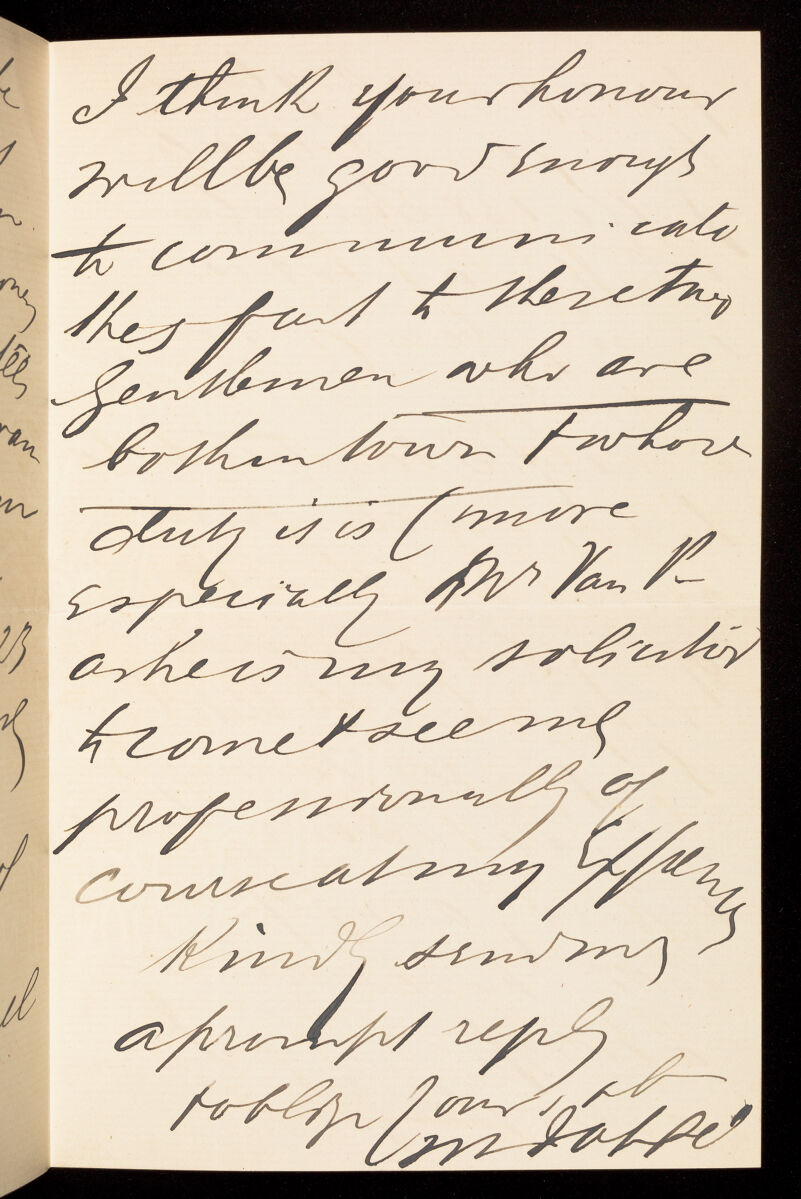 I think your honour
will be good enough
to communicate
this fact to these two
Gentlemen who are
both in town & whose
duty it is (more
especially Mr Van P—
as he is my solicitor
to come & see me
professionally of
course at my Expense
Kindly send me
a prompt reply
& oblige Yours